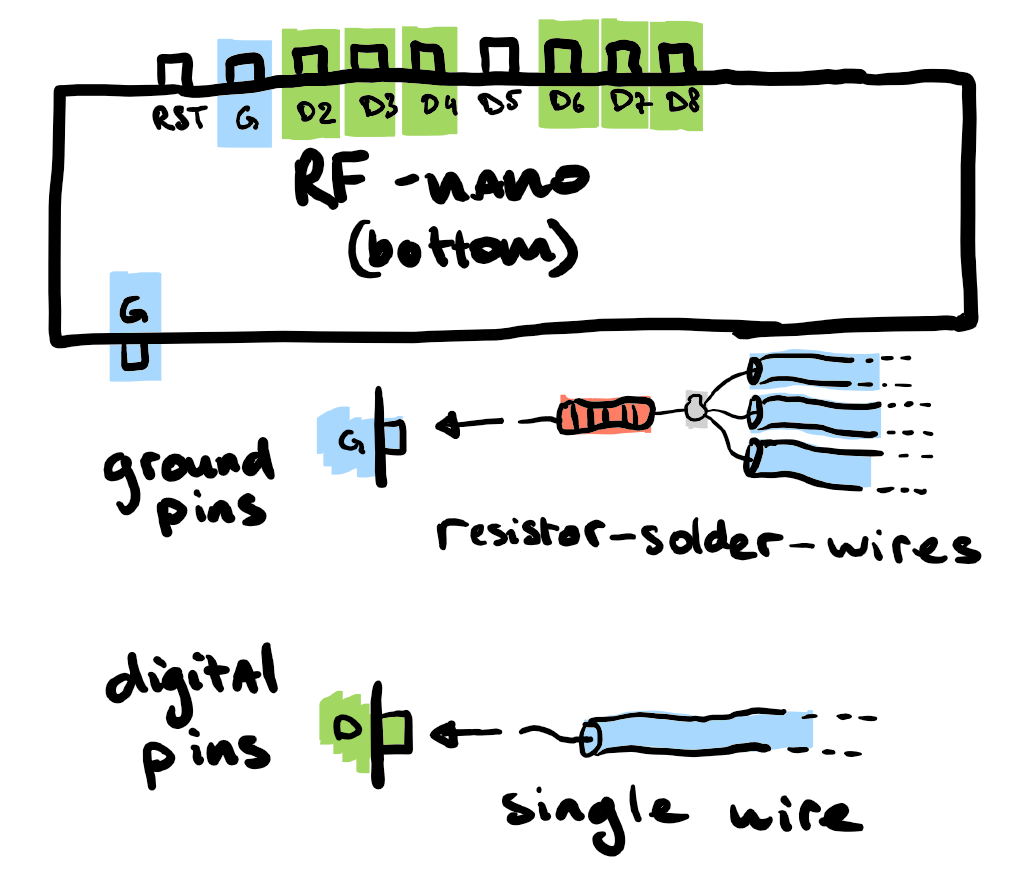 RST G D2 D3 D4 D5 D6 D7 D8
RF-nano
(bottom)
G
ground
pins
G
resistor-solder-wires
digital
pins
D
single wire